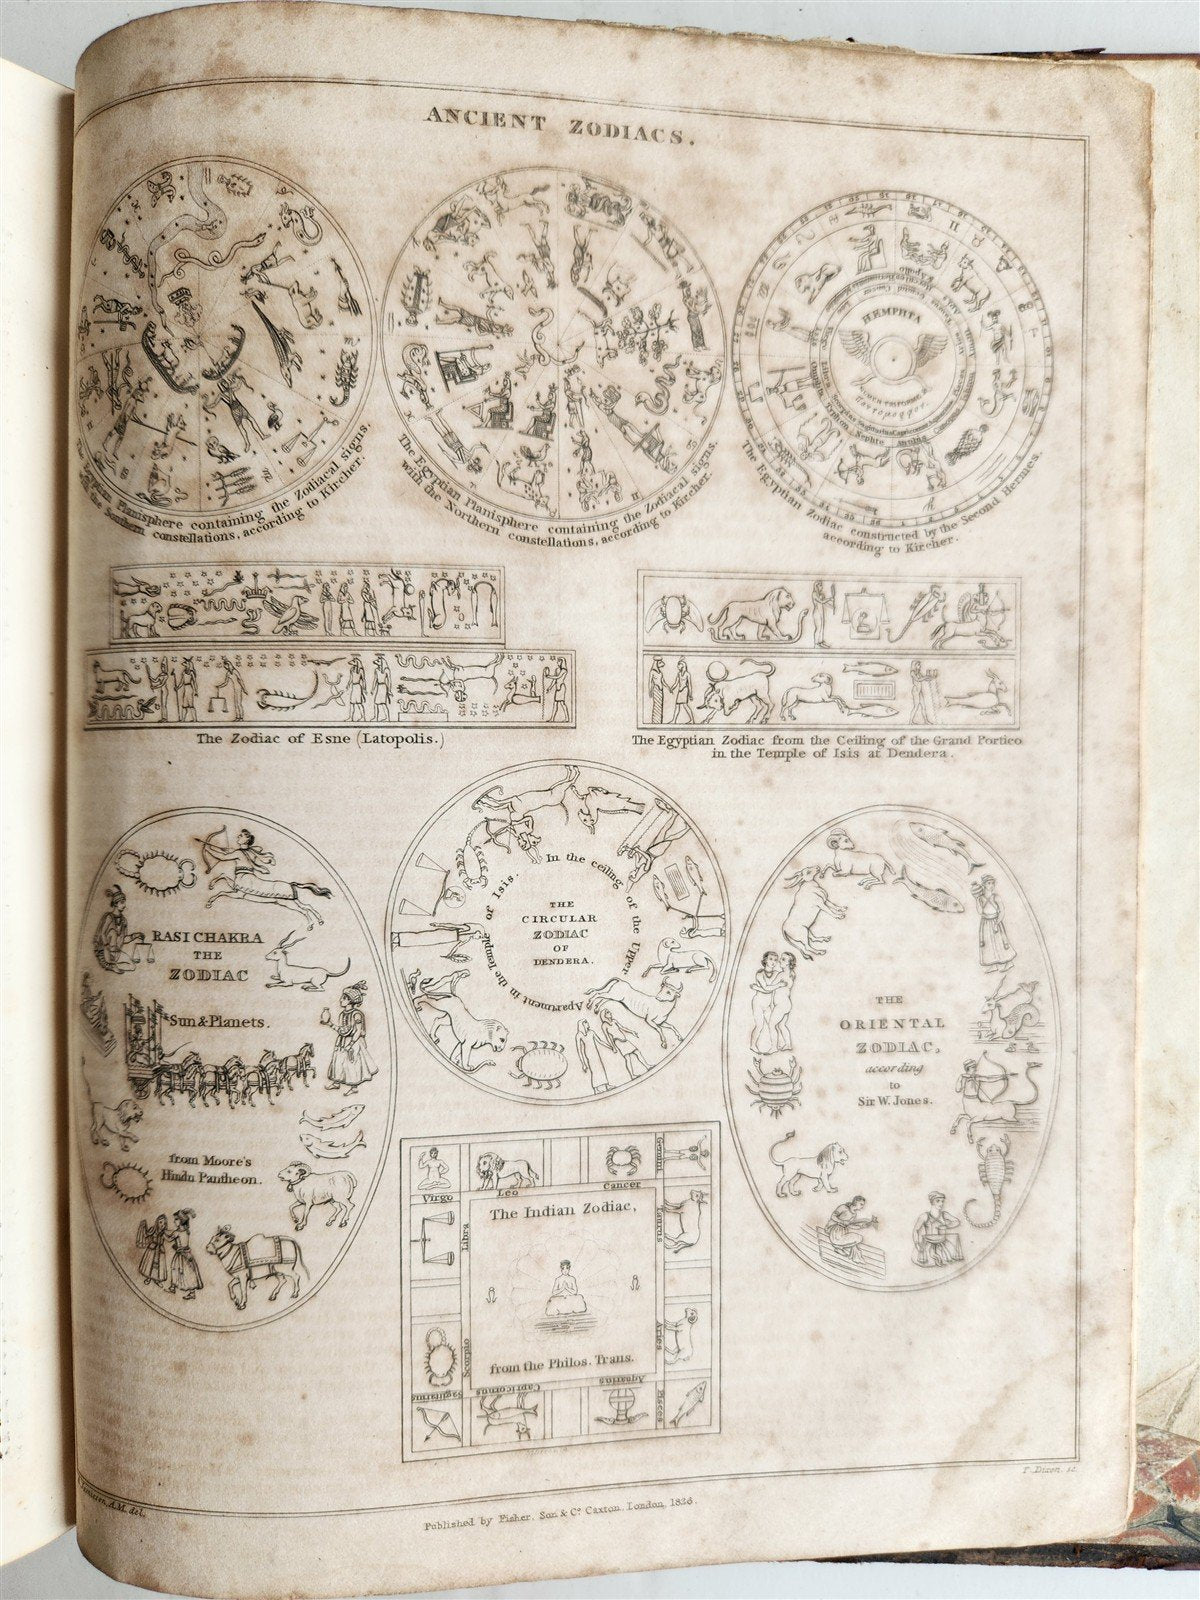 ANCIENT ZODIACS.
The Egyptian Planisphere containing the Zodiacal signs,
with the Southern constellations, according to Kircher.
The Egyptian Planisphere containing the Zodiacal signs,
with the Northern constellations, according to Kircher.
HEMPHTA
The Egyptian Zodiac constructed by the Second Hermes,
according to Kircher.
The Zodiac of Esne (Latopolis.)
The Egyptian Zodiac from the Ceiling of the Grand Portico
in the Temple of Isis at Dendera.
RASI CHAKRA
THE
ZODIAC
Sun & Planets.
from Moore's
Hindu Pantheon.
In the ceiling of the Upper Apartment in the Temple of Isis.
THE
CIRCULAR
ZODIAC
OF
DENDERA.
THE
ORIENTAL
ZODIAC,
according
to
Sir W. Jones.
Virgo
Leo
Cancer
Gemini
Taurus
Aries
Pisces
Aquarius
Capricornus
Sagittarius
Scorpio
Libra
The Indian Zodiac,
from the Philos. Trans.
A.M. del.
T. Dixon. sc.
Published by Fisher, Son & Co. Caxton, London, 1826.